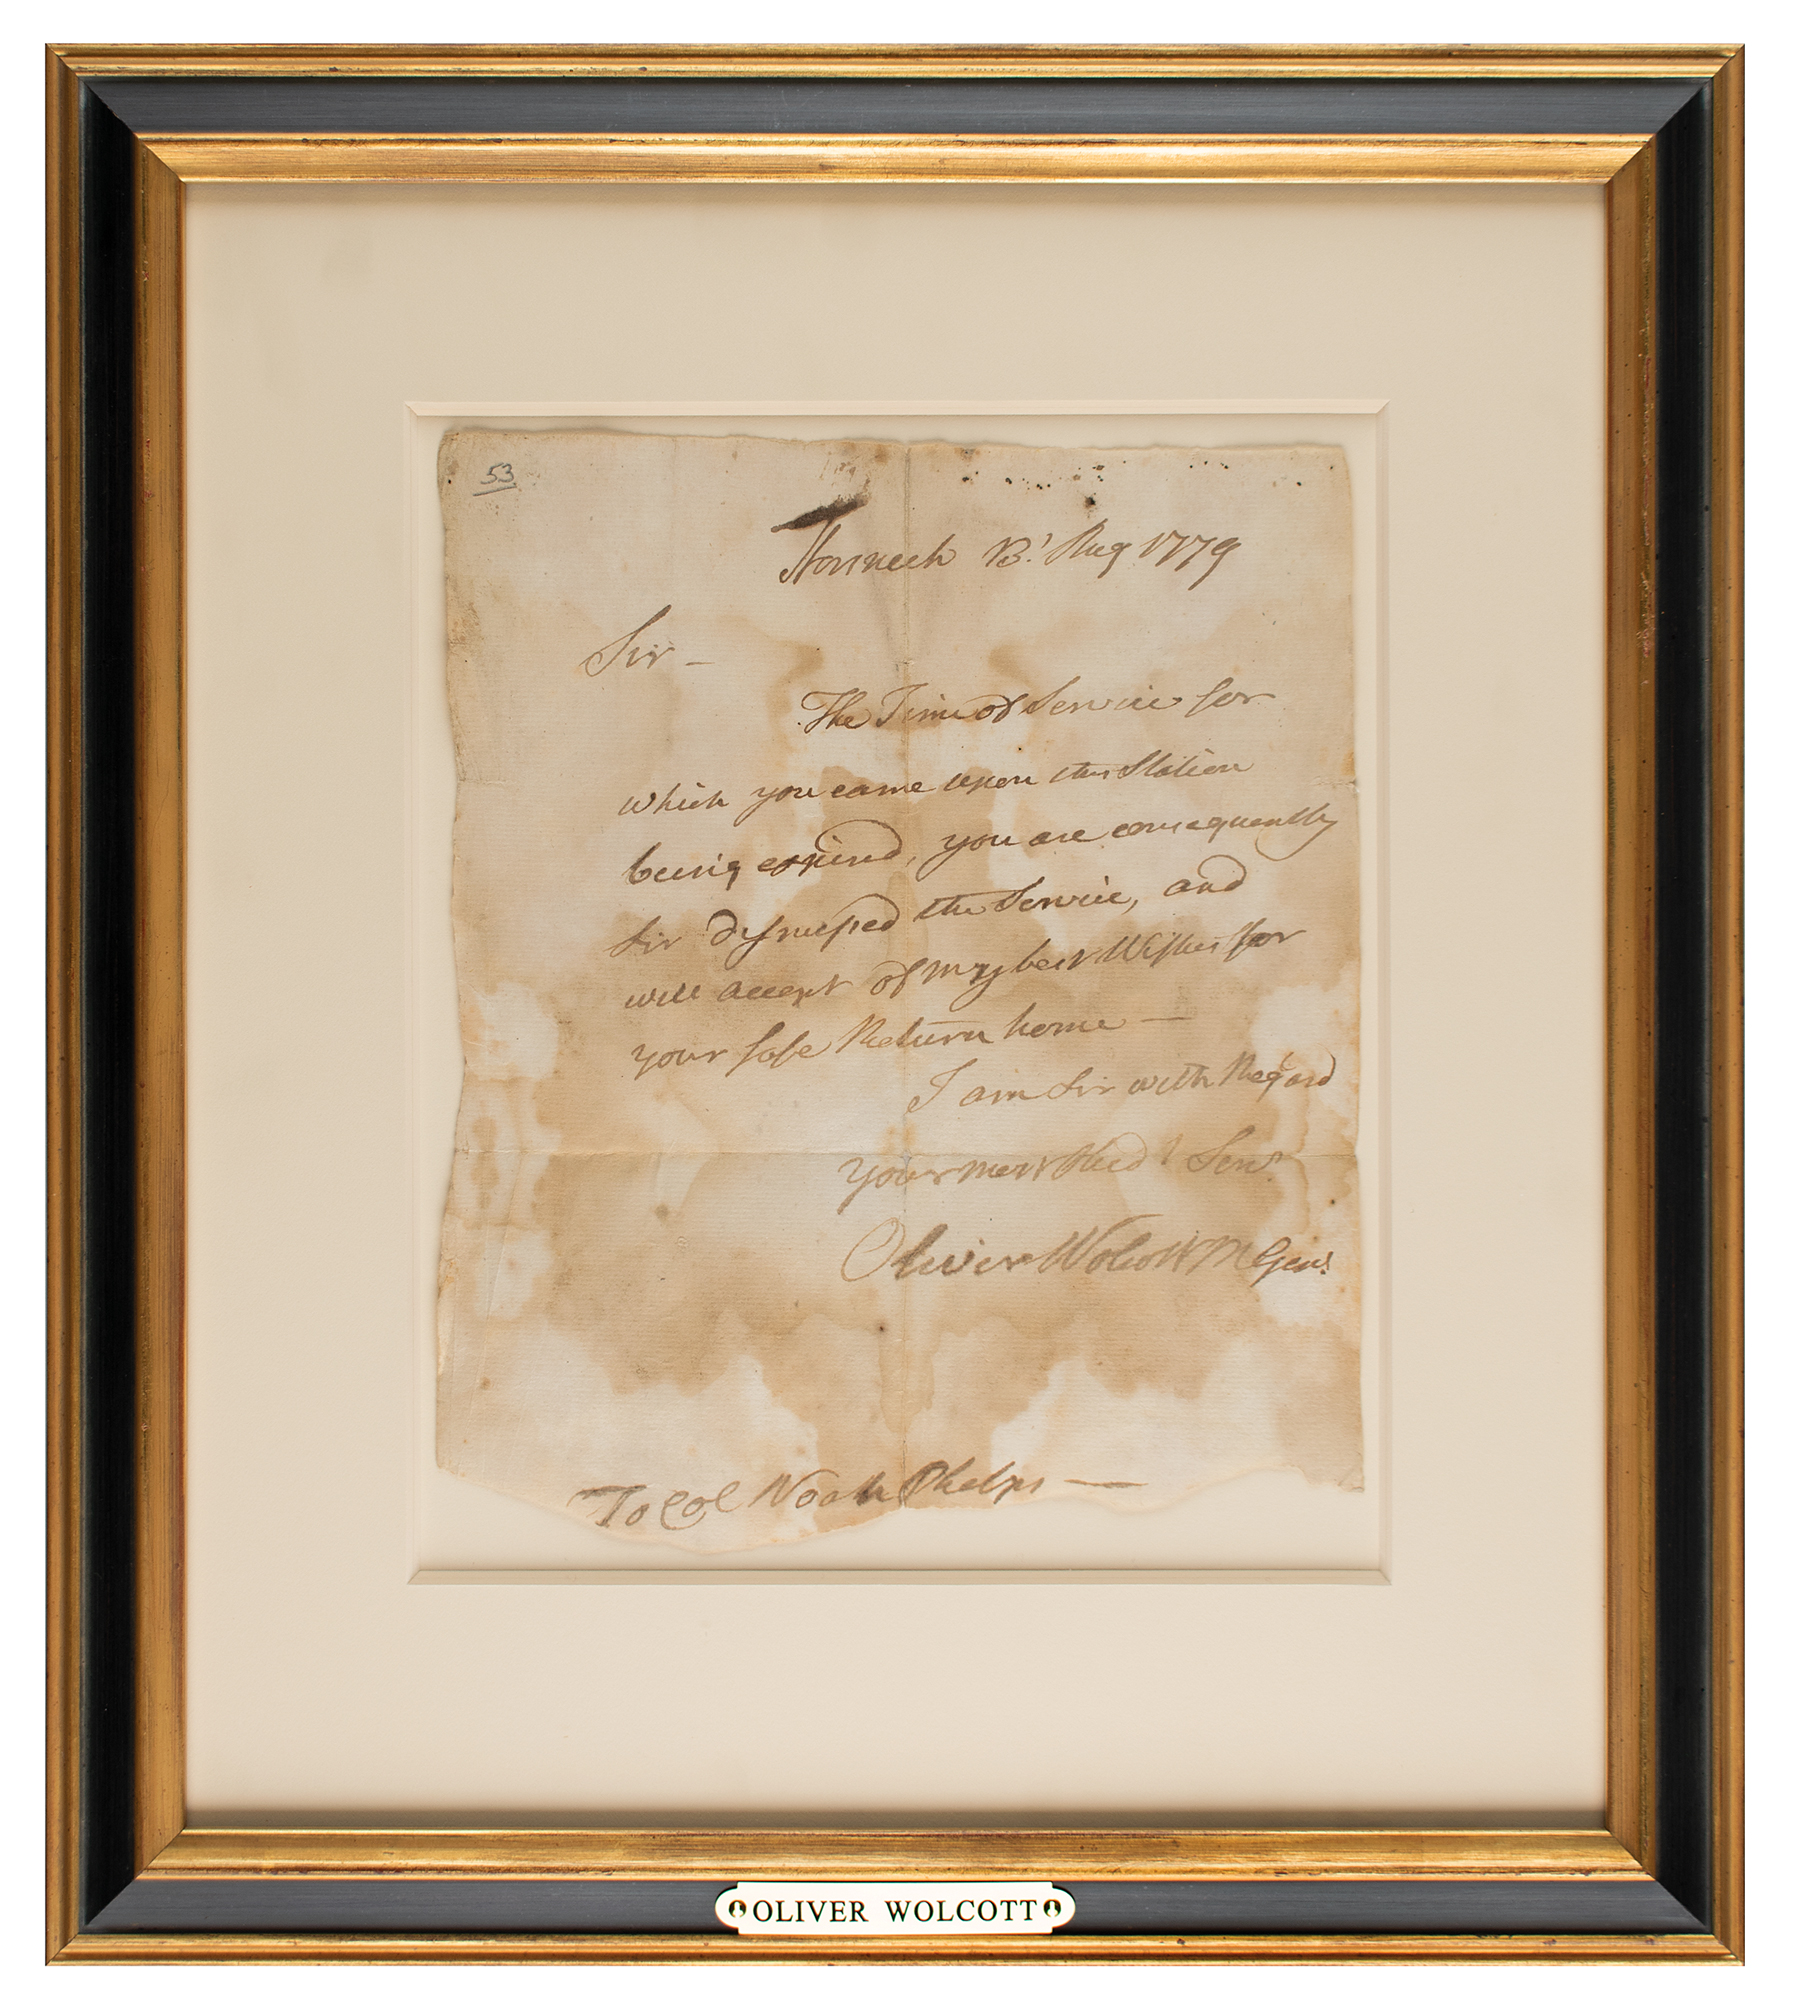 53
Horsneck 13.t Aug 1779
Sir –
The Time of Service for
which you came upon this Station
being expired, you are consequently
Sir dismissed the Service, and
will accept of my best Wishes for
your safe Return home –
I am Sir with Regard
your most Obed.t Serv.t
Oliver Wolcott M Gen.l
To Col Noah Phelps –
OLIVER WOLCOTT